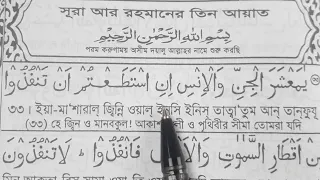 সূরা আর রহমানের তিন আয়াত
بِسْمِ اللهِ الرَّحْمٰنِ الرَّحِيْمِ
পরম করুণাময় অসীম দয়ালু আল্লাহর নামে শুরু করছি
يٰمَعْشَرَ الْجِنِّ وَالْاِنْسِ اِنِ اسْتَطَعْتُمْ اَنْ تَنْفُذُوْا
৩৩। ইয়া-মা'শারাল্ জ্বিন্নি ওয়াল্ ইন্‌সি ইনিস্ তাত্বা'তুম আন্ তান্‌ফুযূ
(৩৩) হে জ্বিন ও মানবকুল! আকাশ ও পৃথিবীর সীমা তোমরা যদি
مِنْ اَقْطَارِ السَّمٰوٰتِ وَالْاَ فَانْفُذُوْا لَا تَنْفُذُوْنَ